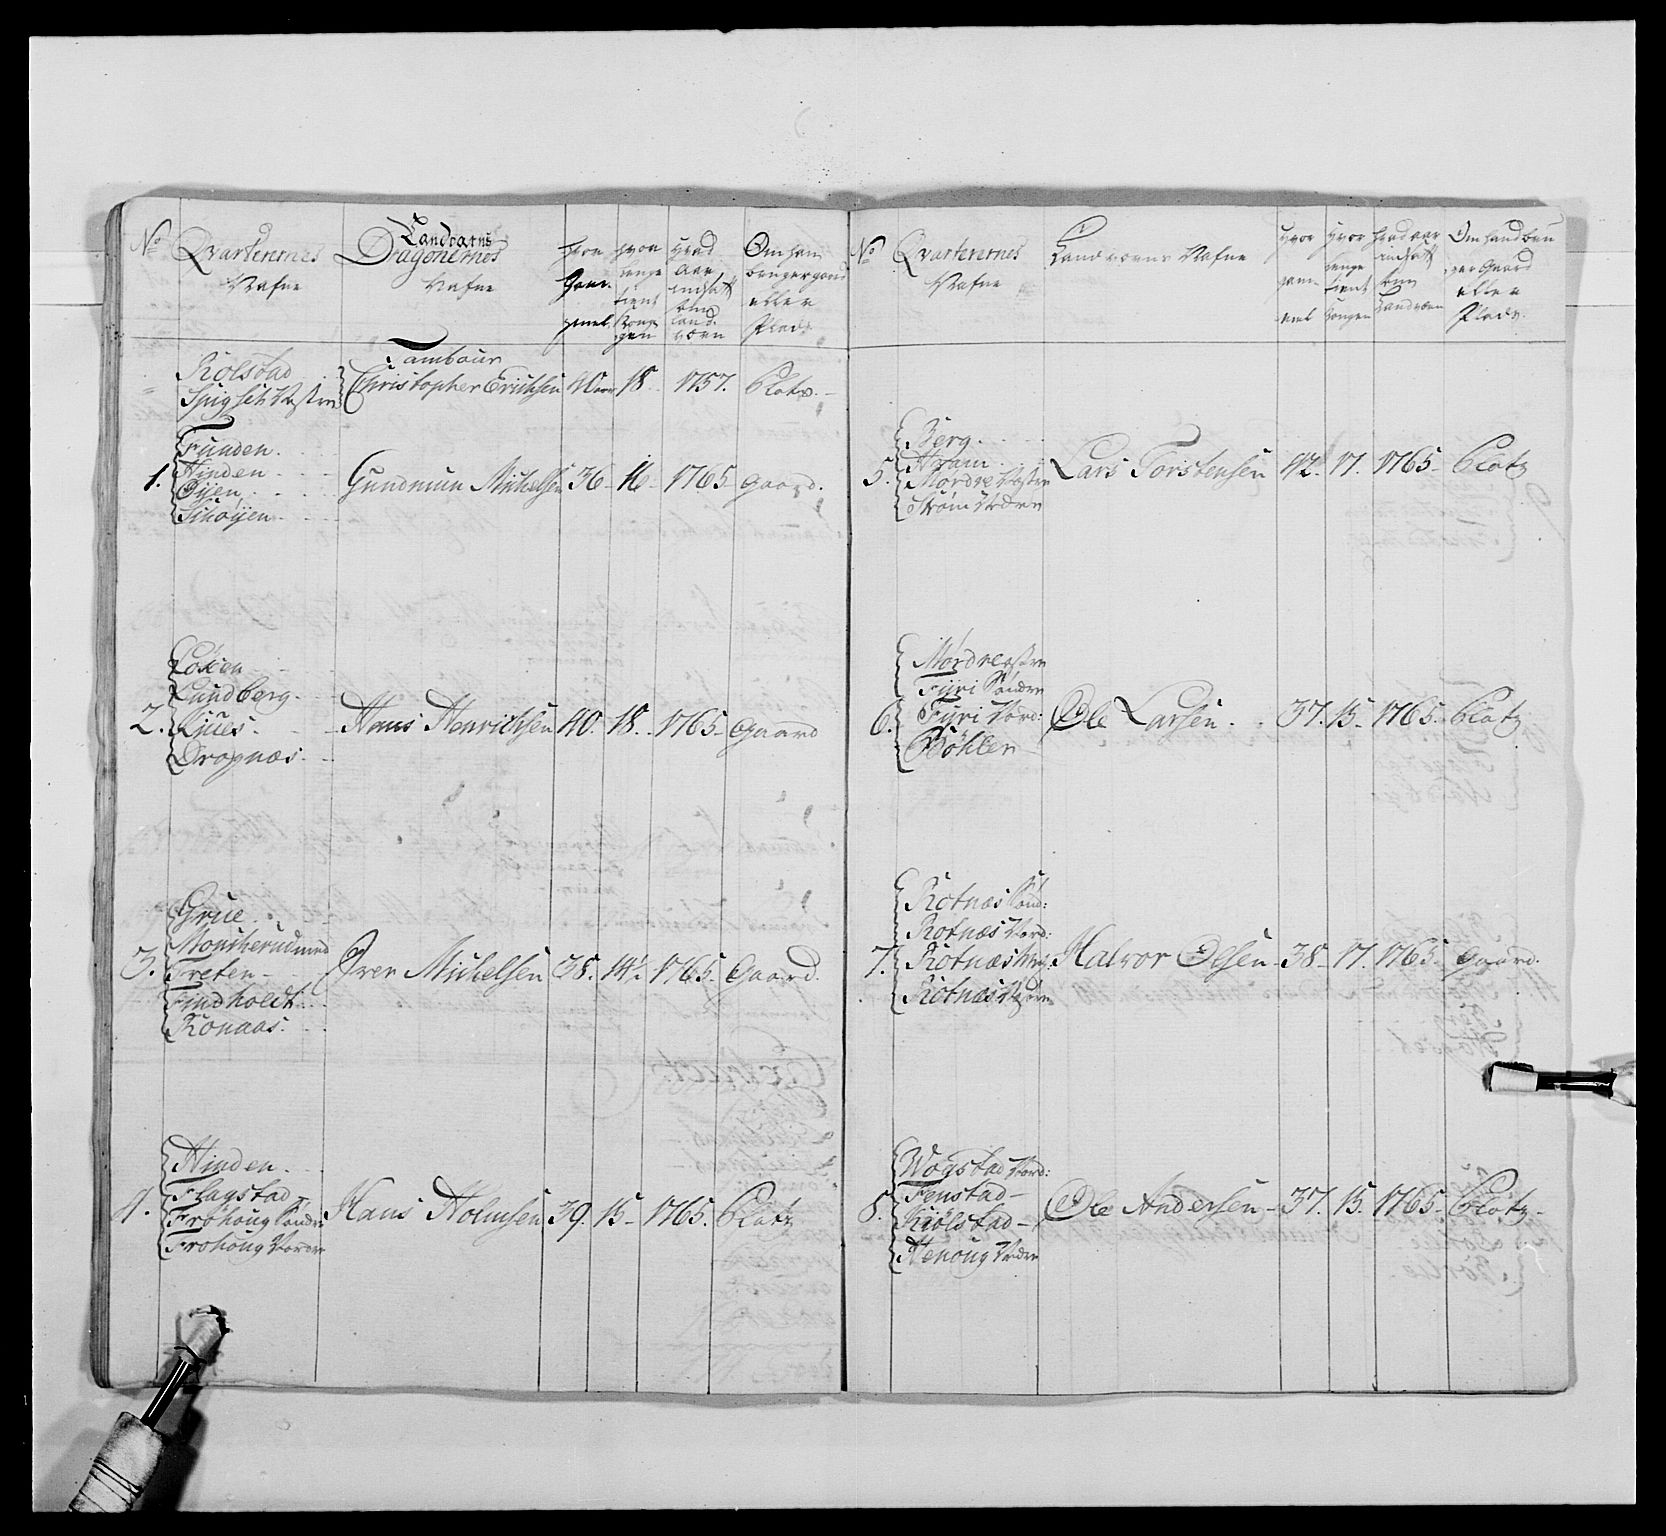 No Qvarterernes Nafne
Landværns Dragonernes Nafne
hvor Gam- mel.
hvor længe tient Kongen
hvad Aar, indsatt om land- værn
Om han bruger gaard eller Plads
Kolstad
Spigset Vestre
Tambour
Christopher Erichsen 40 aar 18. 1757. Platz.
1.
Funden.
Hinden
Øyen
Schøyen
Gundmun Michelsen 36 - 16 - 1765 gaard.
2.
Løken
Lundberg.
Lyves.
Dragnæs.
Hans Henrichsen 40. 18. 1765 - gaard
3.
Grue.
Monsherud med
Treten -
Findholdt
Ronaas.
Iver Michelsen 38. 14½ 1765. Gaard.
4.
Hinden.
Flagstad
Frohoug Søndre
Frohoug Nordre
Hans Holmsen 39. 15 - 1765. Platz
No Qvarterernes Nafne
Landværns Nafne
hvor gam- mel
hvor længe tient Kongen
hvad aar indsatt om Landværn
Om hand bruger Gaard eller Plads.
5.
Berg.
Hvam
Mordre Vestre
Strøm Nedre
Lars Torstensen 42. 17. 1765 - Platz
6.
Mordre østre
Fyri Søndre
Fyri Nord:
Bøhler
Ole Larsen. 37. 15 - 1765. Platz
7.
Rotnæs Sønd:
Rotnæs Nord:
Rotnæs
Rotnæs
Halvor Olsen - 38 - 17. 1765 - gaard.
8.
Wogstad Nord:
Fenstad -
Kiølstad -
Henoug Nedre
Ole Andersen - 37. 15. 1765 - Platz -